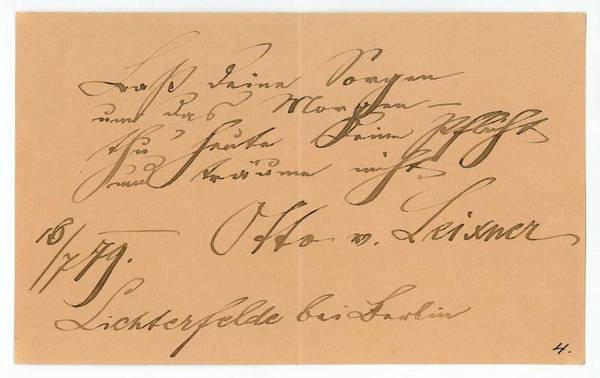 Laß deine Sorgen
um das Morgen —
thu' heute deine Pflicht
und träume nicht
Otto v. Leixner
18/7 79.
Lichterfelde bei Berlin
4.